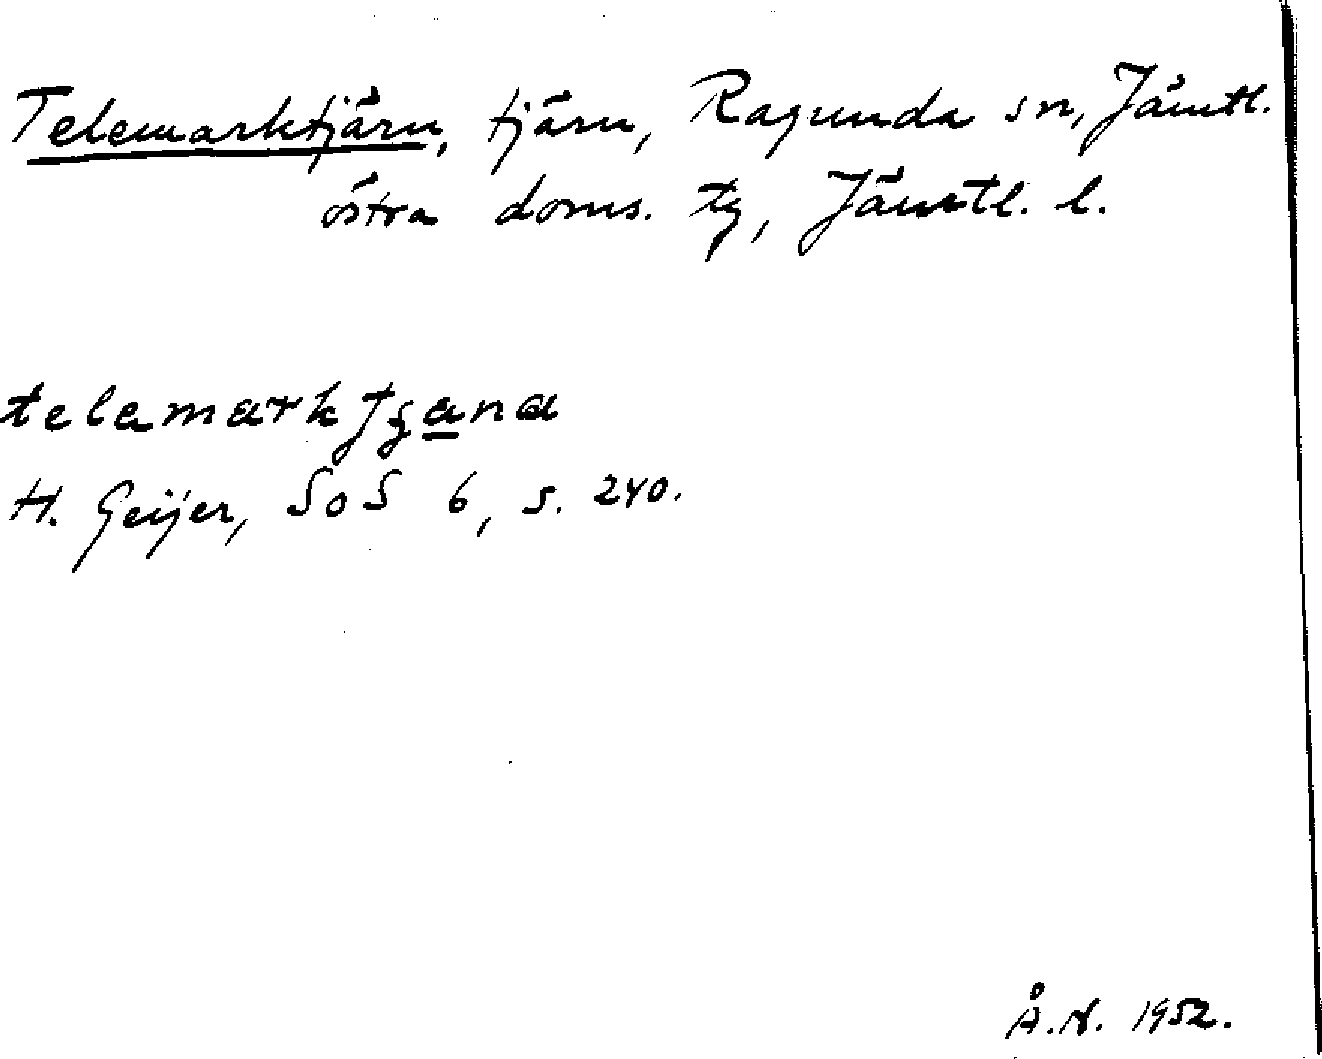 Telemarktjärn, tjärn, Ragunda sn, Jämtl.
östra doms. tg, Jämtl. l.
H. Geijer, SoS 6, s. 240.
Å.N. 1952.